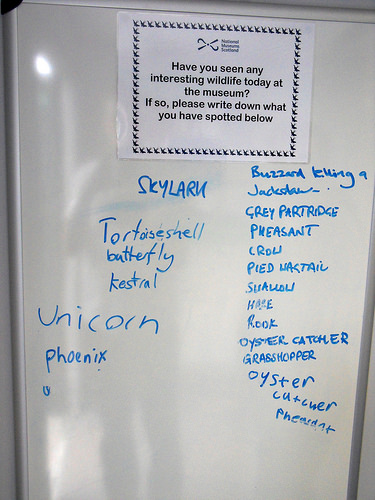 National
Museums
Scotland
Have you seen any
interesting wildlife today at
the museum?
If so, please write down what
you have spotted below
SKYLARK
Tortoiseshell
butterfly
kestral
Unicorn
phoenix
Buzzard killing a
Jackdaw
GREY PARTRIDGE
PHEASANT
CROW
PIED WAGTAIL
SWALLOW
HARE
ROOK
OYSTER CATCHER
GRASSHOPPER
oyster
catcher
Pheasant